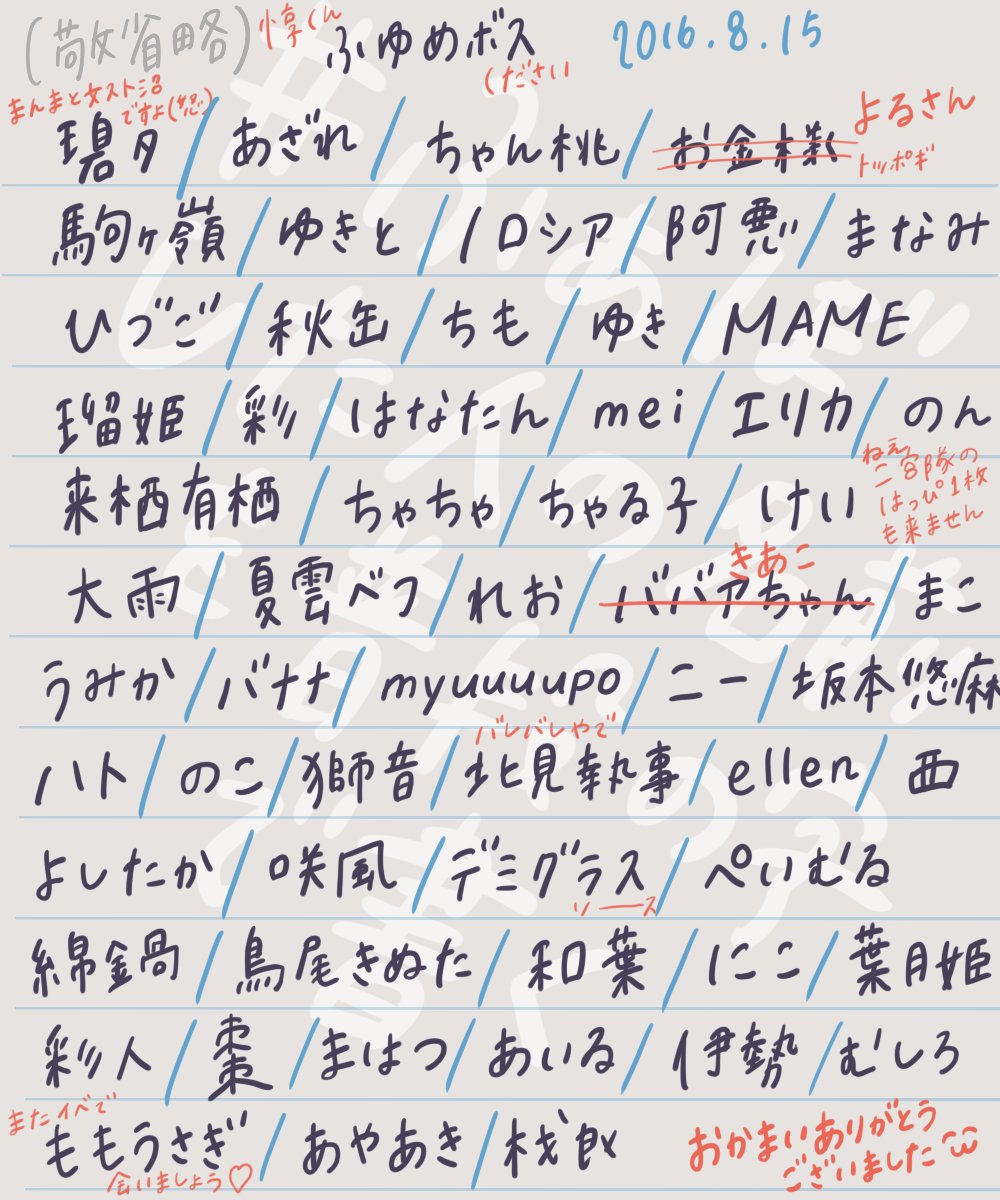 (敬省略) 惇くん ふゆめボス ください 2016.8.15
まんまと女スト沼
ですよ(怒)
碧夕/あざれ/ちゃん桃/お金様 よるさん
トッポギ
駒ヶ嶺/ゆきと/ノロシア/阿悪/まなみ
ひづご/秋缶/ちも/ゆき/MAME
瑠姫/彩/はなたん/mei/エリカ/のん
来栖有栖/ちゃちゃ/ちゃる子/けい
ねえ
二宮隊の
はっぴ1枚
も来ません
きあこ
大雨/夏雲ベフ/れお/ババアちゃん/まこ
うみか/バナナ/myuuuupo/ニー/坂本悠麻
バレバレやで
ハト/のこ/獅音/北見執事/ellen/西
よしたか/咲風/デミグラス/ぺいむる
ソース
綿鍋/鳥尾きぬた/和葉/にこ/葉月姫
彩人/棗/まはつ/あいる/伊勢/むしろ
またイベで
ももうさぎ/あやあき/
会いましょう♡
おかまいありがとう
ございました
#ふぁぼ
した人の名前
を普段の字
で書く